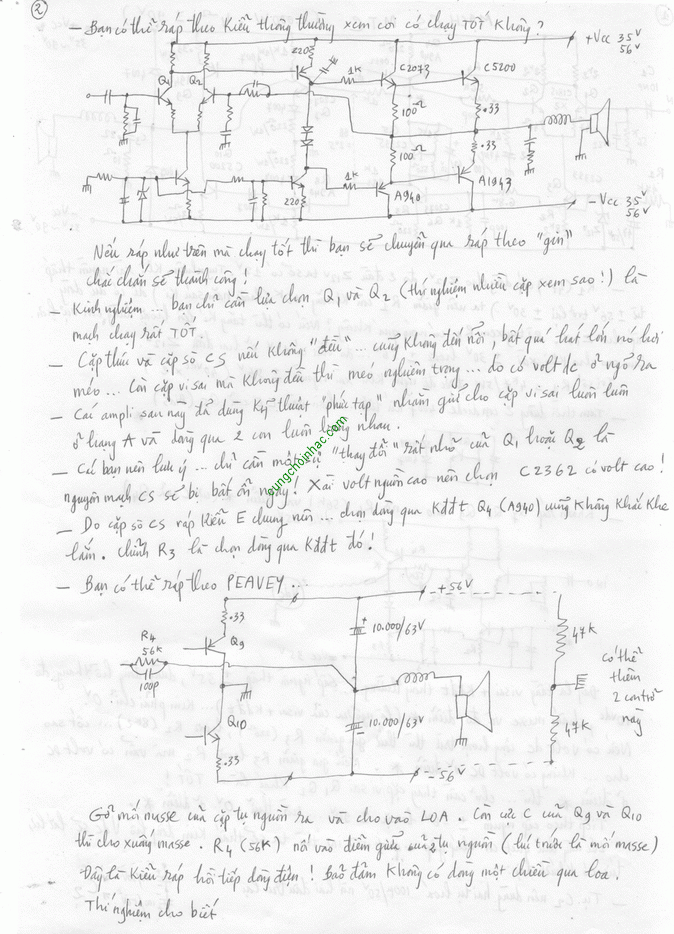 2
– Bạn có thể ráp theo kiểu thông thường xem coi có chạy TỐT không?
+Vcc 35V
56V
220
1K
C2073
C5200
Q1
Q2
100Ω
.33
100Ω
.33
1K
A940
A1943
220
–Vcc 35V
56V
Nếu ráp như trên mà chạy tốt thì bạn sẽ chuyển qua ráp theo "gin"
chắc chắn sẽ thành công!
– Kinh nghiệm ... bạn chỉ cần lựa chọn Q1 và Q2 (thí nghiệm nhiều cặp xem sao!) là
mạch chạy rất TỐT.
– Cặp thúc và cặp sò CS nếu không "đều" ... cũng không đến nỗi, bất quá hát lớn nó hơi
méo ... Còn cặp vi sai mà không đều thì méo nghiêm trọng ... do có volt dc ở ngõ ra
– Các ampli sau này đã dùng kỹ thuật "phức tạp" nhằm giữ cho cặp vi sai luôn luôn
ở hạng A và dòng qua 2 con luôn bằng nhau.
– Các bạn nên lưu ý ... chỉ cần một "thay đổi" rất nhỏ của Q1 hoặc Q2 là
nguyên mạch CS sẽ bị bất ổn ngay! Xài volt nguồn cao nên chọn C2362 có volt cao!
cungchoinhac.com
– Do cặp sò CS ráp kiểu E chung nên ... chọn dòng qua Kđđt Q4 (A940) cũng không khắc khe
lắm. Chỉnh R3 là chọn dòng qua Kđđt đó!
– Bạn có thể ráp theo PEAVEY ...
+56V
.33
R4
56K
Q9
10.000/63V
47K
100p
có thể
thêm
2 con trở
này
Q10
10.000/63V
47K
.33
–56V
Gỡ mối masse của cặp tụ nguồn ra và cho vào LOA. Còn cực C của Q9 và Q10
thì cho xuống masse. R4 (56K) nối vào điểm giữa của 2 tụ nguồn (lúc trước là mối masse)
Đây là kiểu ráp hồi tiếp dòng điện! Bảo đảm không có dòng một chiều qua loa.
Thí nghiệm cho biết